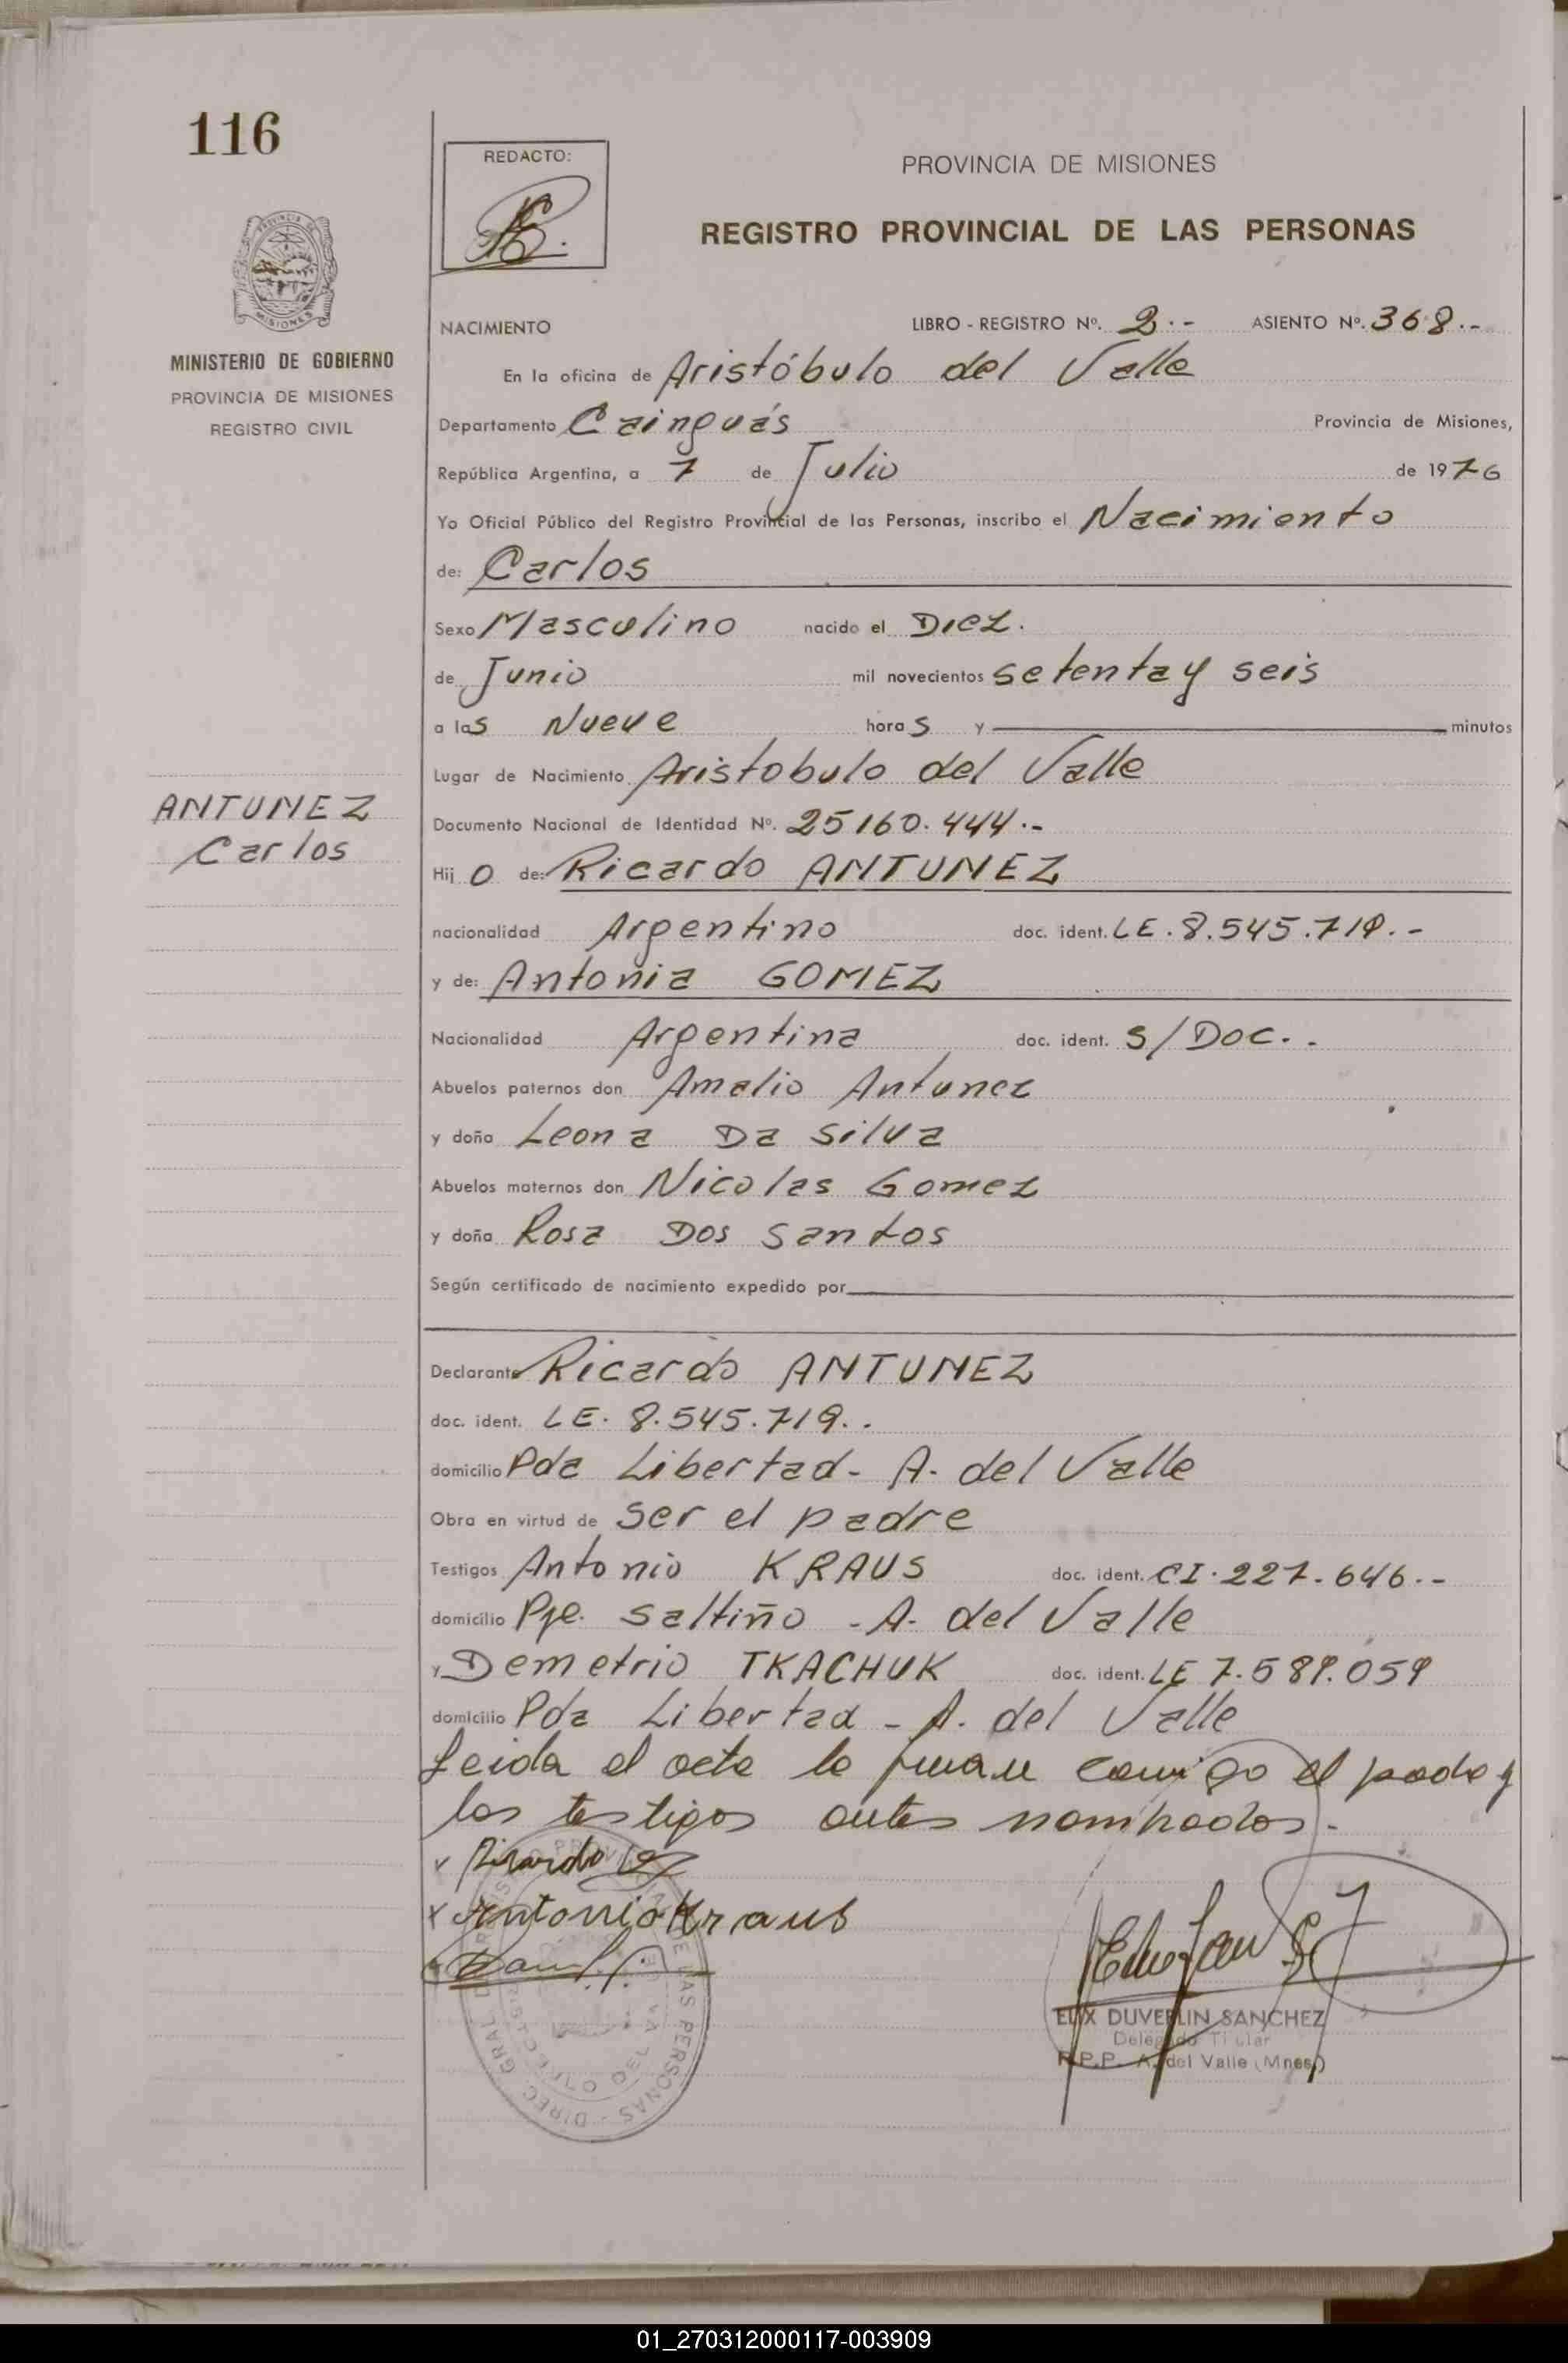 116
REDACTO:
PROVINCIA DE MISIONES
REGISTRO PROVINCIAL DE LAS PERSONAS
MISIONES
MINISTERIO DE GOBIERNO
PROVINCIA DE MISIONES
REGISTRO CIVIL
NACIMIENTO LIBRO - REGISTRO Nº. 2.- ASIENTO Nº. 368.-
En la oficina de Aristóbulo del Valle
Departamento Cainguás Provincia de Misiones,
República Argentina, a 7 de Julio de 1976
Yo Oficial Público del Registro Provincial de las Personas, inscribo el Nacimiento
de: Carlos
Sexo Masculino nacido el Diez.
de Junio mil novecientos setenta y seis
a las Nueve horas y minutos
Lugar de Nacimiento Aristobulo del Valle
ANTUNEZ
Carlos
Documento Nacional de Identidad Nº. 25160.444.-
Hijo de: Ricardo ANTUNEZ
nacionalidad Argentino doc. ident. LE. 8.545.719.-
y de: Antonia GOMEZ
Nacionalidad Argentina doc. ident. S/Doc..
Abuelos paternos don Amalio Antunez
y doña Leona Da Silva
Abuelos maternos don Nicolas Gomez
y doña Rosa Dos Santos
Según certificado de nacimiento expedido por
Declarante Ricardo ANTUNEZ
doc. ident. LE. 8.545.719..
domicilio Pda Libertad - A. del Valle
Obra en virtud de ser el padre
Testigos Antonio KRAUS doc. ident. CI. 227.646.-
domicilio Pje. Saltiño - A. del Valle
y Demetrio TKACHUK doc. ident. LE 7.589.059
domicilio Pda Libertad - A. del Valle
Leida el acta la firman conmigo el padre y
los testigos antes nombrados.-
x Ricardo
x Antonio Kraus
ELIX DUVERLIN SANCHEZ
Delegado Titular
R.P.P. A. del Valle (Mnes.)
01_270312000117-003909